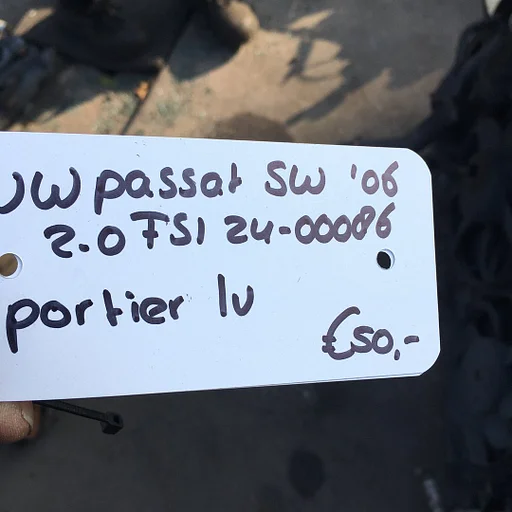 VW passat SW '06
2.0 FSI 24-00086
portier lv
€50,-